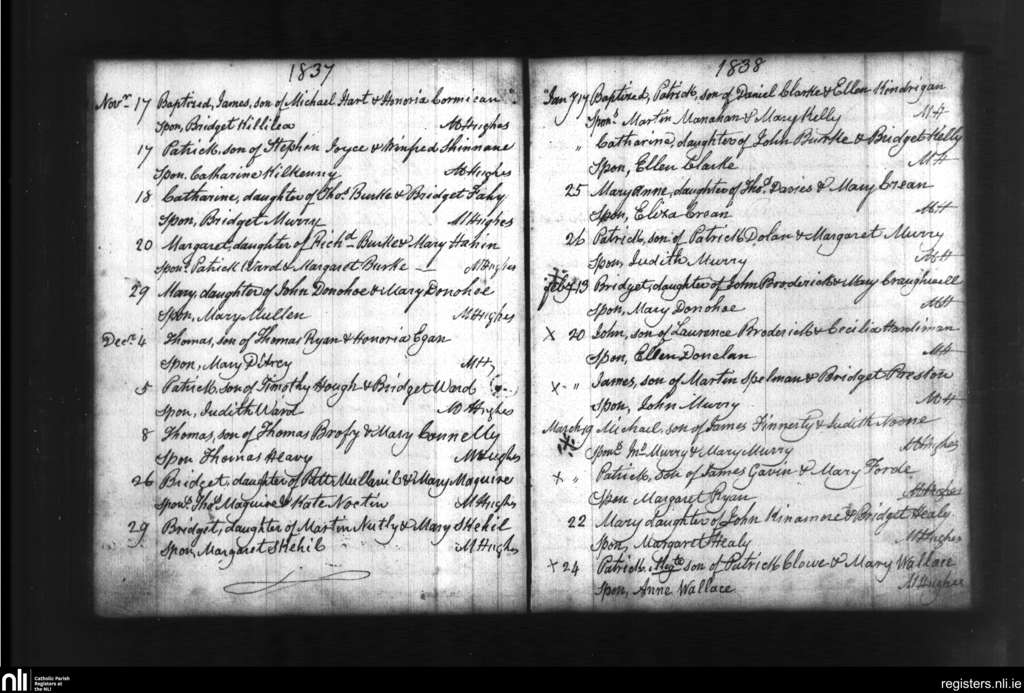 1837
Novr 17 Baptized, James, son of Michael Hart & Honoria Cormican
Spon, Bridget Killilea M Hughes
17 Patrick, son of Stephen Joyce & Winfred Shinnane
Spon. Catharine Kilkenny M Hughes
18 Catharine, daughter of Thos. Burke & Bridget Fahy
Spon, Bridget Murry M Hughes
20 Margaret, daughter of Richd. Burke & Mary
Spon. Patrick Ward & Margaret Burke — M Hughes
29 Mary, daughter of John Donohoe & Mary Donohoe
Spon, Mary Mullen M Hughes
Decr. 4 Thomas, son of Thomas Ryan & Honoria Egan
Spon, Mary D'Arcy MH,
5 Patrick, son of Timothy Hough & Bridget Ward
Spon, Judith Ward M Hughes
8 Thomas, son of Thomas Brofy & Mary Connelly
Spon Thomas Heavy M Hughes
26 Bridget, daughter of Patt & Mary Maguire
Spons. Thos Maguire & Kate Noctin M Hughes
29 Bridget, daughter of Martin Nutly & Mary Skehil
Spon, Margaret Skehil M Hughes
1838
Jany 17 Baptized, Patrick, son of Daniel Clarke & Ellen Hindrigan
Spons. Martin Manahan & Mary Kelly MH
" Catharine, daughter of John Burke & Bridget Kelly
Spon, Ellen Clarke MH
25 Mary Anne, daughter of Thos. Davies & Mary Crean
Spon, Eliza Crean MH
26 Patrick, son of Patrick Dolan & Margaret Murry
Spon, Judith Murry MH
Feby 13 Bridget, daughter of John Broderick & Mary Creighwell
Spon, Mary Donohoe MH
X 20 John, son of Laurence Broderick & Cecilia Hardiman
Spon, Ellen Donelan MH
X - " James, son of Martin Spelman & Bridget Preston
Spon, John Murry MH
March 19 Michael, son of James Finnerty & Judith Noone
Spons. Murry & Mary Murry M Hughes
X " Patrick, son of James Gavin & Mary Forde
Spon Margaret Ryan M Hughes
22 Mary daughter of John Kinamore & Bridget Healy
Spon, Margaret Healy M Hughes
X 24 Patrick, son of Patrick Clowe & Mary Wallace
Spon, Anne Wallace M Hughes
nli Catholic Parish
Registers at
the NLI
registers.nli.ie